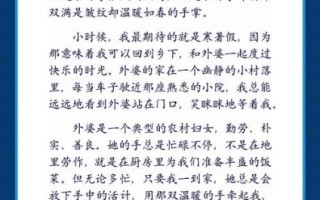 双满是皱纹却温暖如春的手掌。
小时候，我最期待的就是寒暑假，因
为那意味着我可以回到乡下，和外婆一起度过
快乐的时光。外婆的家在一个幽静的小村落
里，每当车子驶近那座熟悉的小院，我总能
远远地看到外婆站在门口，笑眯眯地等着我。
外婆是一个典型的农村妇女，勤劳、朴
实、善良。她的手总是忙碌不停，不是在地
里劳作，就是在厨房里为我们准备丰盛的饭
菜。但无论多忙，只要我一到家，她总是会
放下手中的活计，用那双温暖的手牵起我，